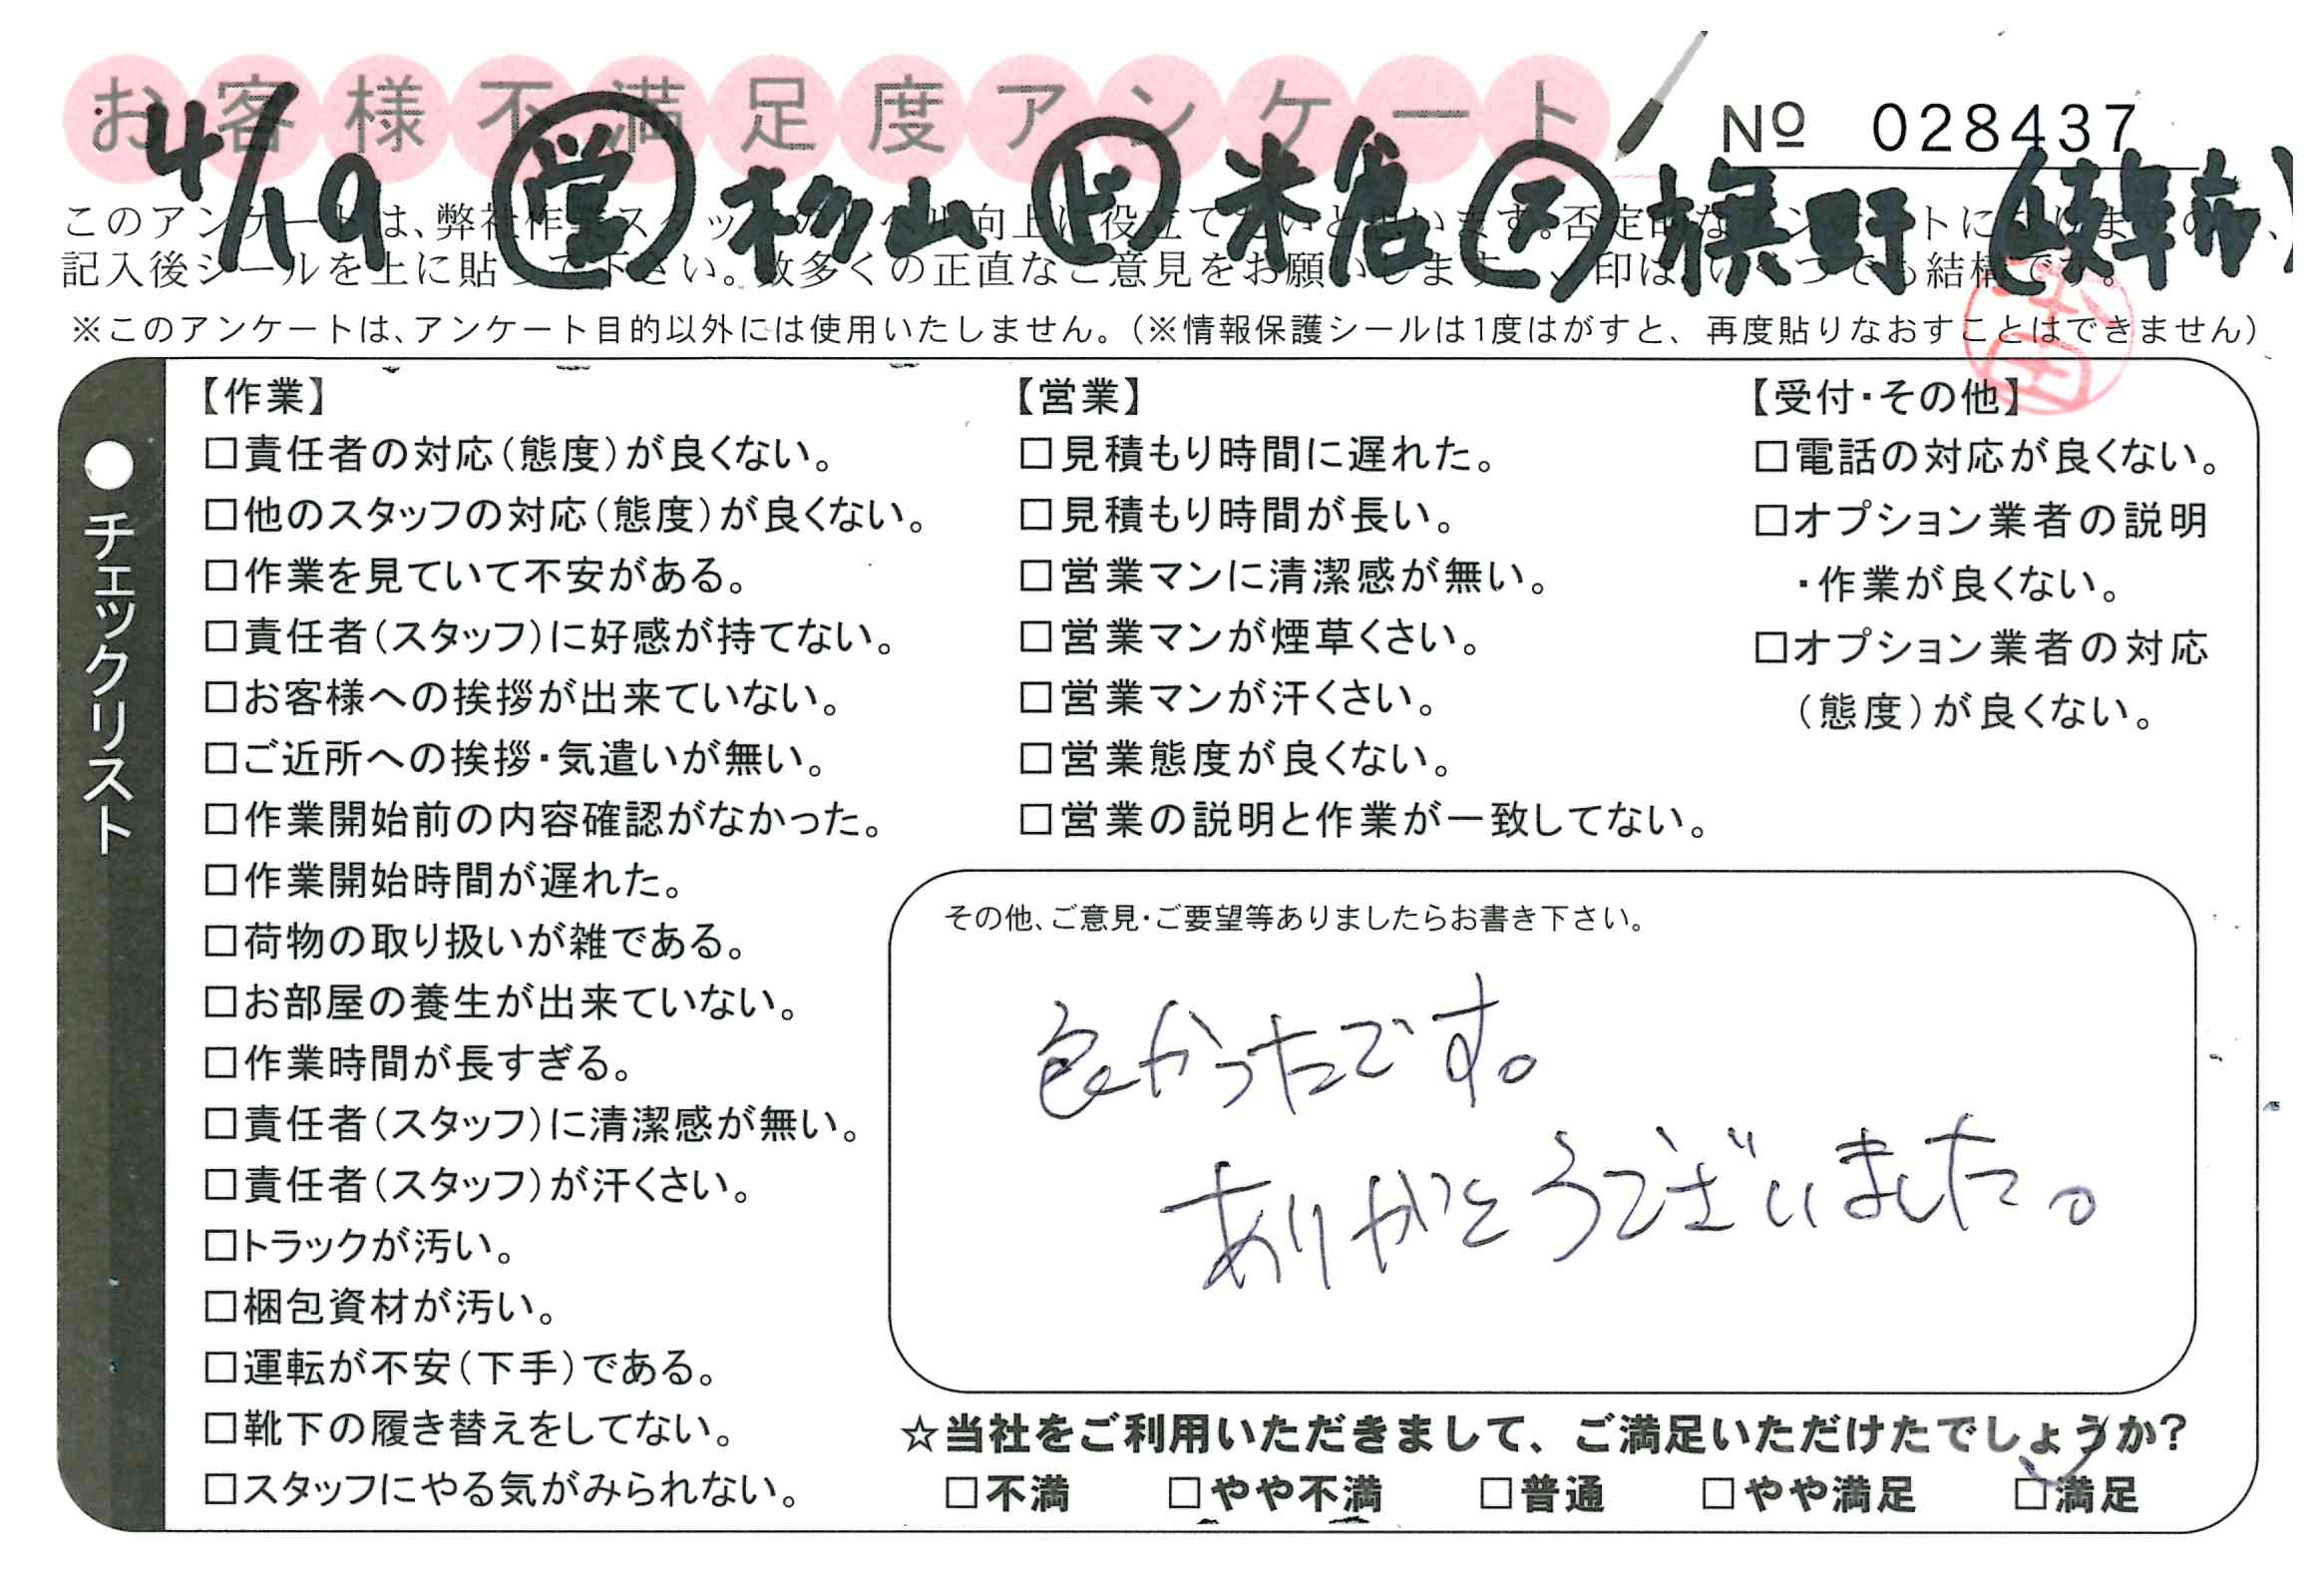 お客様不満足度アンケート
№ 028437
4/19 ㊡ 杉山 ㋪ 米倉 ㋐ 旗野 (岐阜市)
このアンケートは、弊社作業スタッフのレベル向上に役立てたいと思います。否定的なアンケートになりますので、
記入後シールを上に貼って下さい。数多くの正直なご意見をお願いします。✓印はいくつでも結構です。
※このアンケートは、アンケート目的以外には使用いたしません。(※情報保護シールは1度はがすと、再度貼りなおすことはできません)
●チェックリスト
【作業】
□責任者の対応(態度)が良くない。
□他のスタッフの対応(態度)が良くない。
□作業を見ていて不安がある。
□責任者(スタッフ)に好感が持てない。
□お客様への挨拶が出来ていない。
□ご近所への挨拶・気遣いが無い。
□作業開始前の内容確認がなかった。
□作業開始時間が遅れた。
□荷物の取り扱いが雑である。
□お部屋の養生が出来ていない。
□作業時間が長すぎる。
□責任者(スタッフ)に清潔感が無い。
□責任者(スタッフ)が汗くさい。
□トラックが汚い。
□梱包資材が汚い。
□運転が不安(下手)である。
□靴下の履き替えをしてない。
□スタッフにやる気がみられない。
【営業】
□見積もり時間に遅れた。
□見積もり時間が長い。
□営業マンに清潔感が無い。
□営業マンが煙草くさい。
□営業マンが汗くさい。
□営業態度が良くない。
□営業の説明と作業が一致してない。
【受付・その他】
□電話の対応が良くない。
□オプション業者の説明
・作業が良くない。
□オプション業者の対応
(態度)が良くない。
その他、ご意見・ご要望等ありましたらお書き下さい。
良かったです。
ありがとうございました。
☆当社をご利用いただきまして、ご満足いただけたでしょうか?
□不満 □やや不満 □普通 □やや満足 ☑満足